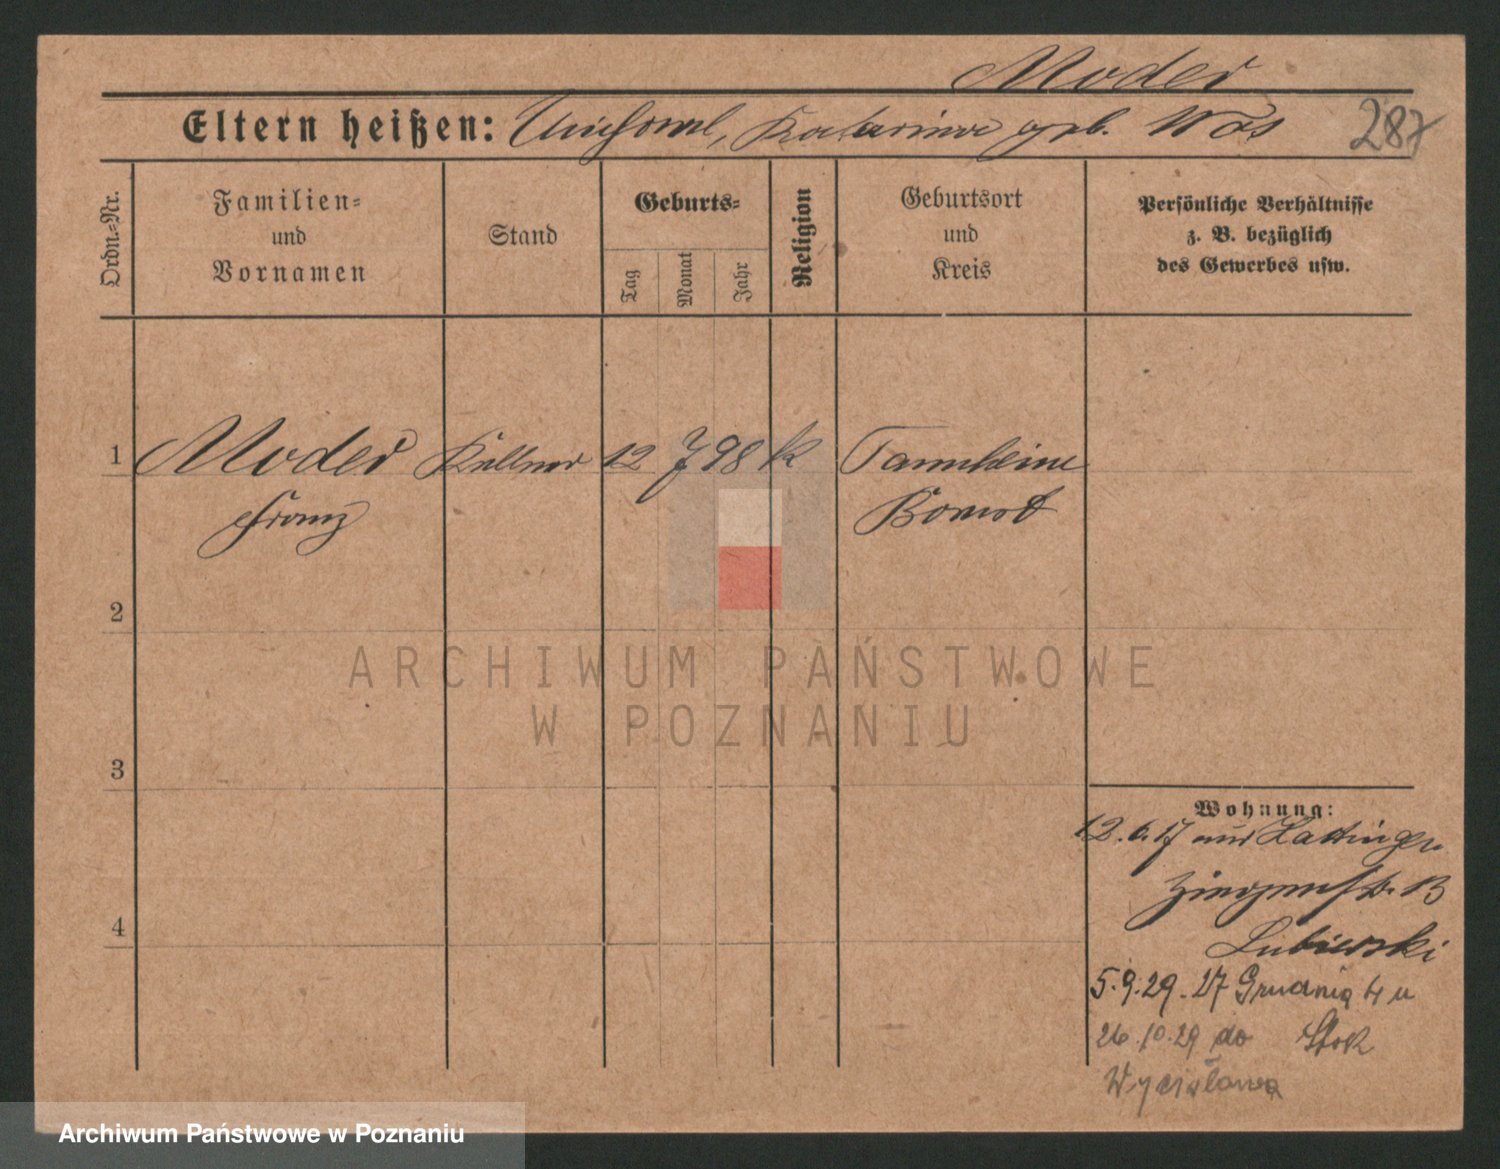 Moder
Eltern heißen: Michael, Katarina geb. Was 287
Ordn.-Nr.
Familien-
und
Vornamen
Stand
Geburts-
Tag
Monat
Jahr
Religion
Geburtsort
und
Kreis
Persönliche Verhältnisse
z. B. bezüglich
des Gewerbes usw.
1 Moder Kellner 12 7 98 k Tannheim
Franz Bomst
2
3
4
Wohnung:
12.6.17 aus Hattingen
13
Lubiewski
5.9.29. 27 Grudnia 4 u
26.10.29 do Stok
Wycisława
ARCHIWUM PAŃSTWOWE
W POZNANIU
Archiwum Państwowe w Poznaniu